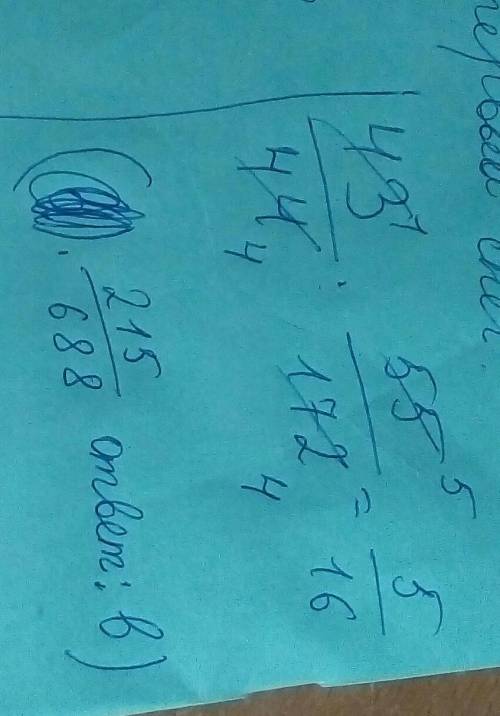 43¹/44₄ · 55⁵/172₄ = 5/16
( . 215/688 ответ: в)